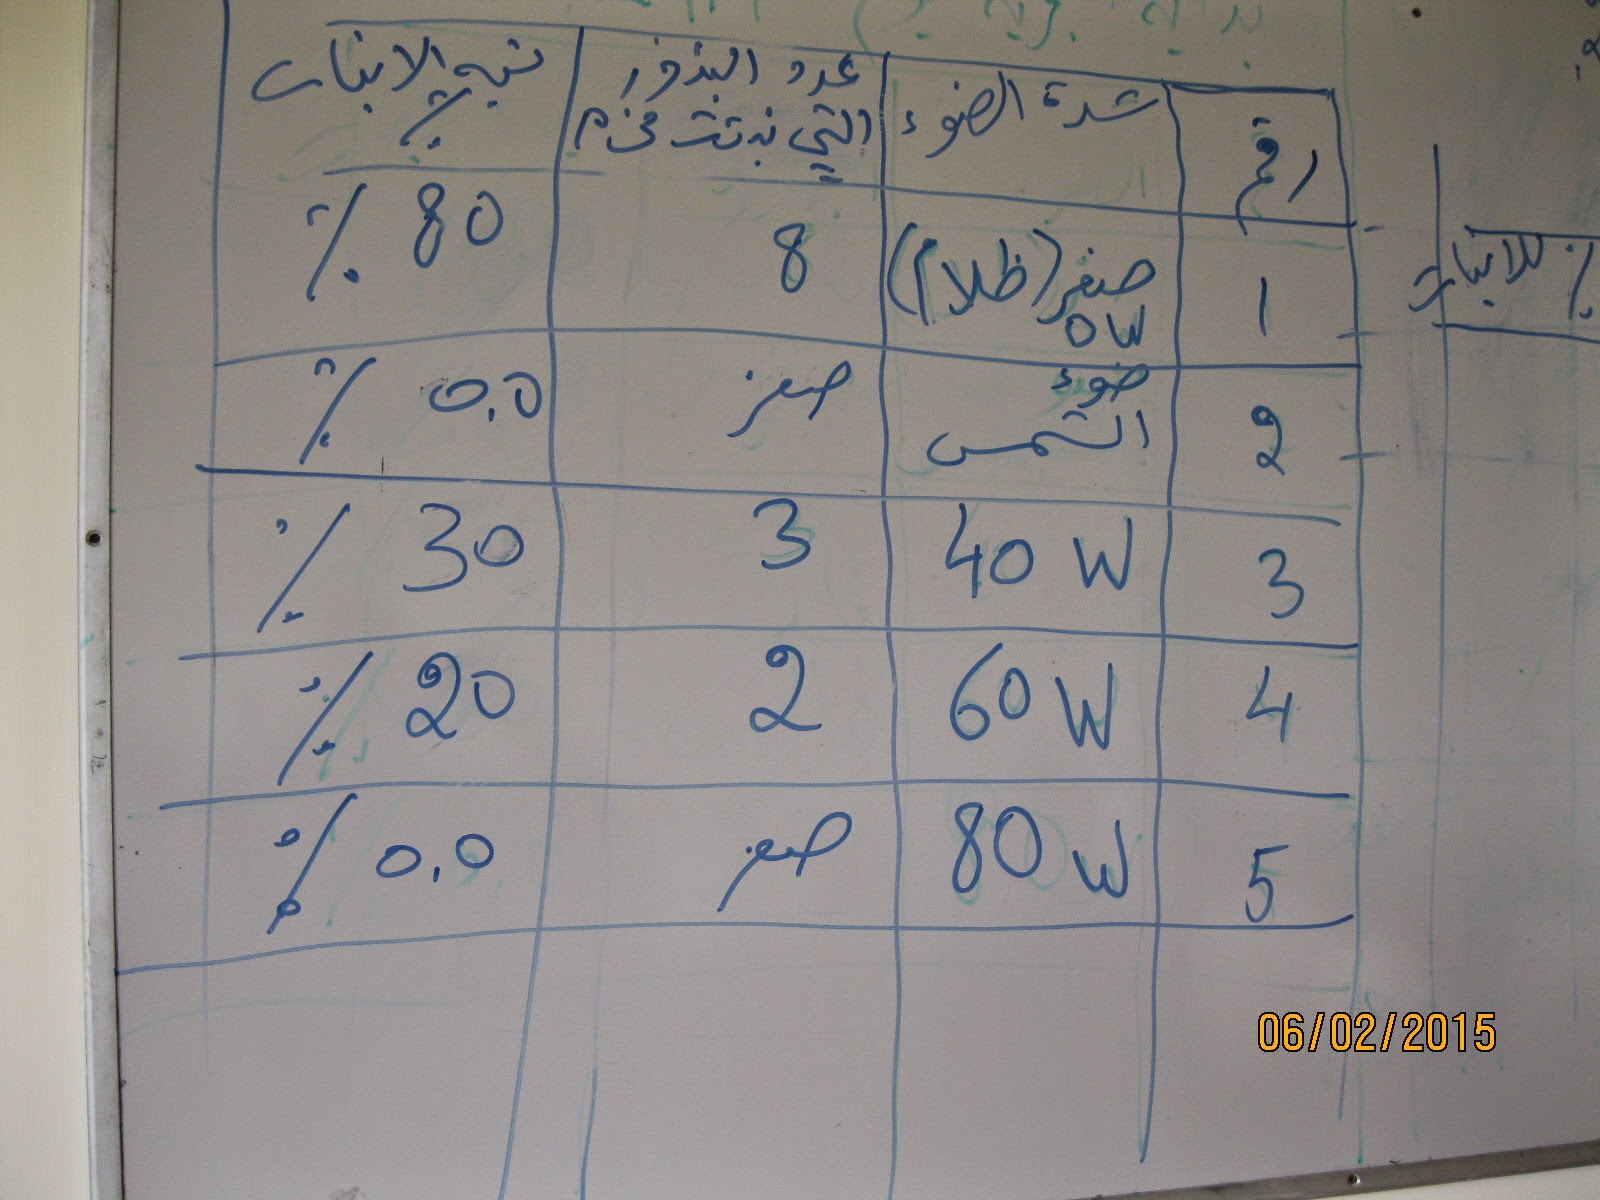 رقم شدة الضوء عدد البذور نسبة الانبات
التي نبتت %
1 صفر (ظلام) 8 80 %
0W
2 ضوء صفر 0.0 %
الشمس
3 40 W 3 30 %
4 60 W 2 20 %
5 80 W صفر 0.0 %
% للانبات
06/02/2015